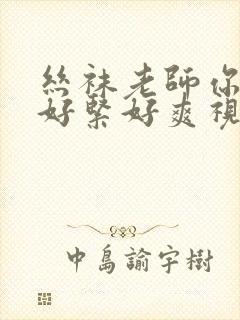 絲袜老師你
好緊好爽視
中島諭宇樹